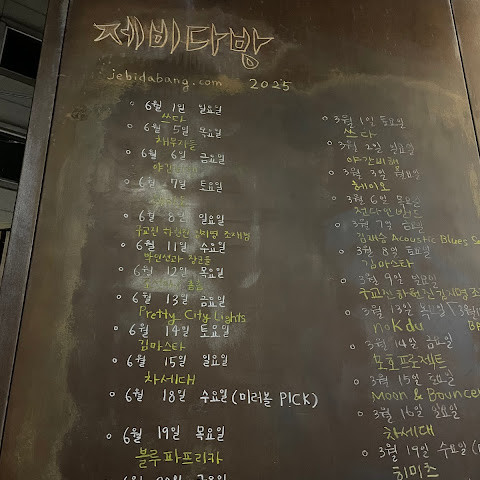 제비다방
jebidabang.com 2025
6월 1일 일요일
쓰다
6월 5일 목요일
6월 6일 금요일
6월 7일 토요일
6월 8일 일요일
구교진 하헌진 김지명 조재범
6월 11일 수요일
6월 12일 목요일
6월 13일 금요일
Pretty City Lights
6월 14일 토요일
김마스타
6월 15일 일요일
차세대
6월 18일 수요일 (미러볼 P!CK)
6월 19일 목요일
블루파프리카
3월 1일 토요일
쓰다
3월 2일 일요일
3월 3일 월요일
헤이요
3월 6일 목요일
3월 7일 금요일
Acoustic Blues
3월 8일 토요일
김마스타
3월 9일 일요일
구교진 하헌진 김지명
3월 13일 목요일
nokdu
3월 14일 금요일
포호프로젝트
3월 15일 토요일
Moon & Bouncer
3월 16일 일요일
차세대
3월 19일 수요일
히미츠